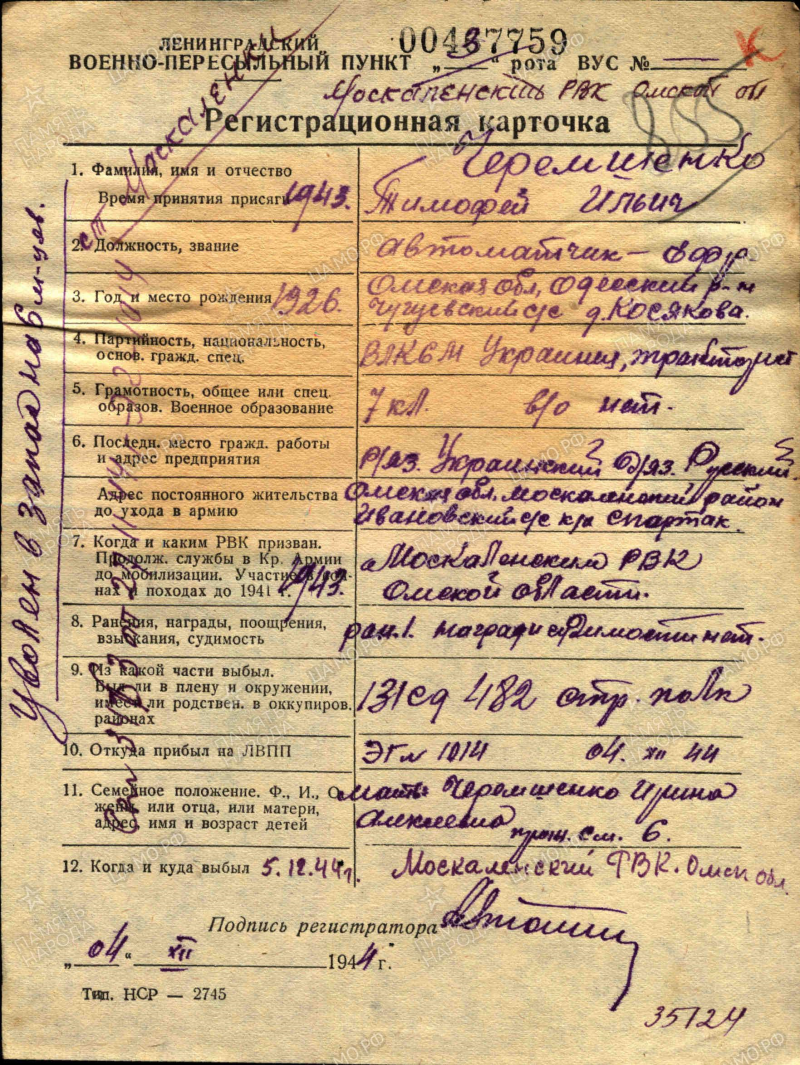 ЛЕНИНГРАДСКИЙ
00437759
ВОЕННО-ПЕРЕСЫЛЬНЫЙ ПУНКТ „3“ рота ВУС №
Москаленский РВК Омской обл
Регистрационная карточка
1. Фамилия, имя и отчество
Черемшенко
Время принятия присяги 1943.
Тимофей Ильич
2. Должность, звание
автоматчик – ефр.
3. Год и место рождения 1926.
Омская обл, Одесский р-н
Чугуевский с/с д. Косякова.
4. Партийность, национальность,
основ. гражд. спец.
ВЛКСМ Украинец, тракторист
5. Грамотность, общее или спец.
образов. Военное образование
7 кл. в/о нет.
6. Последн. место гражд. работы
и адрес предприятия
р/яз. Украинский о/яз. Русский.
Адрес постоянного жительства
до ухода в армию
Омская обл. Москаленский район
Ивановский с/с к/з Спартак.
7. Когда и каким РВК призван.
Продолж. службы в Кр. Армии
до мобилизации. Участие в
нах и походах до 1941 г. 1943.
Москаленский РВК
Омской области.
8. Ранения, награды, поощрения,
взыскания, судимость
ран. 1.
9. Из какой части выбыл.
Был ли в плену и окружении,
имеет ли родствен. в оккупиров.
районах
131 сд 482 стр. полк
10. Откуда прибыл на ЛВПП
ЭГ № 1014 04. XII 44
11. Семейное положение. Ф., И., О.
жены, или отца, или матери,
адрес, имя и возраст детей
мать: Черемшенко Ирина
Алексеевна
прож. см. 6.
12. Когда и куда выбыл 5.12.44г.
Москаленский РВК. Омск обл.
Подпись регистратора
„04“ XII 1944 г.
Тип. НСР — 2745
35124
Уволен в запас на 6 м-цев.
ст Москаленки
855
ПАМЯТЬ НАРОДА
ЦАМО.РФ